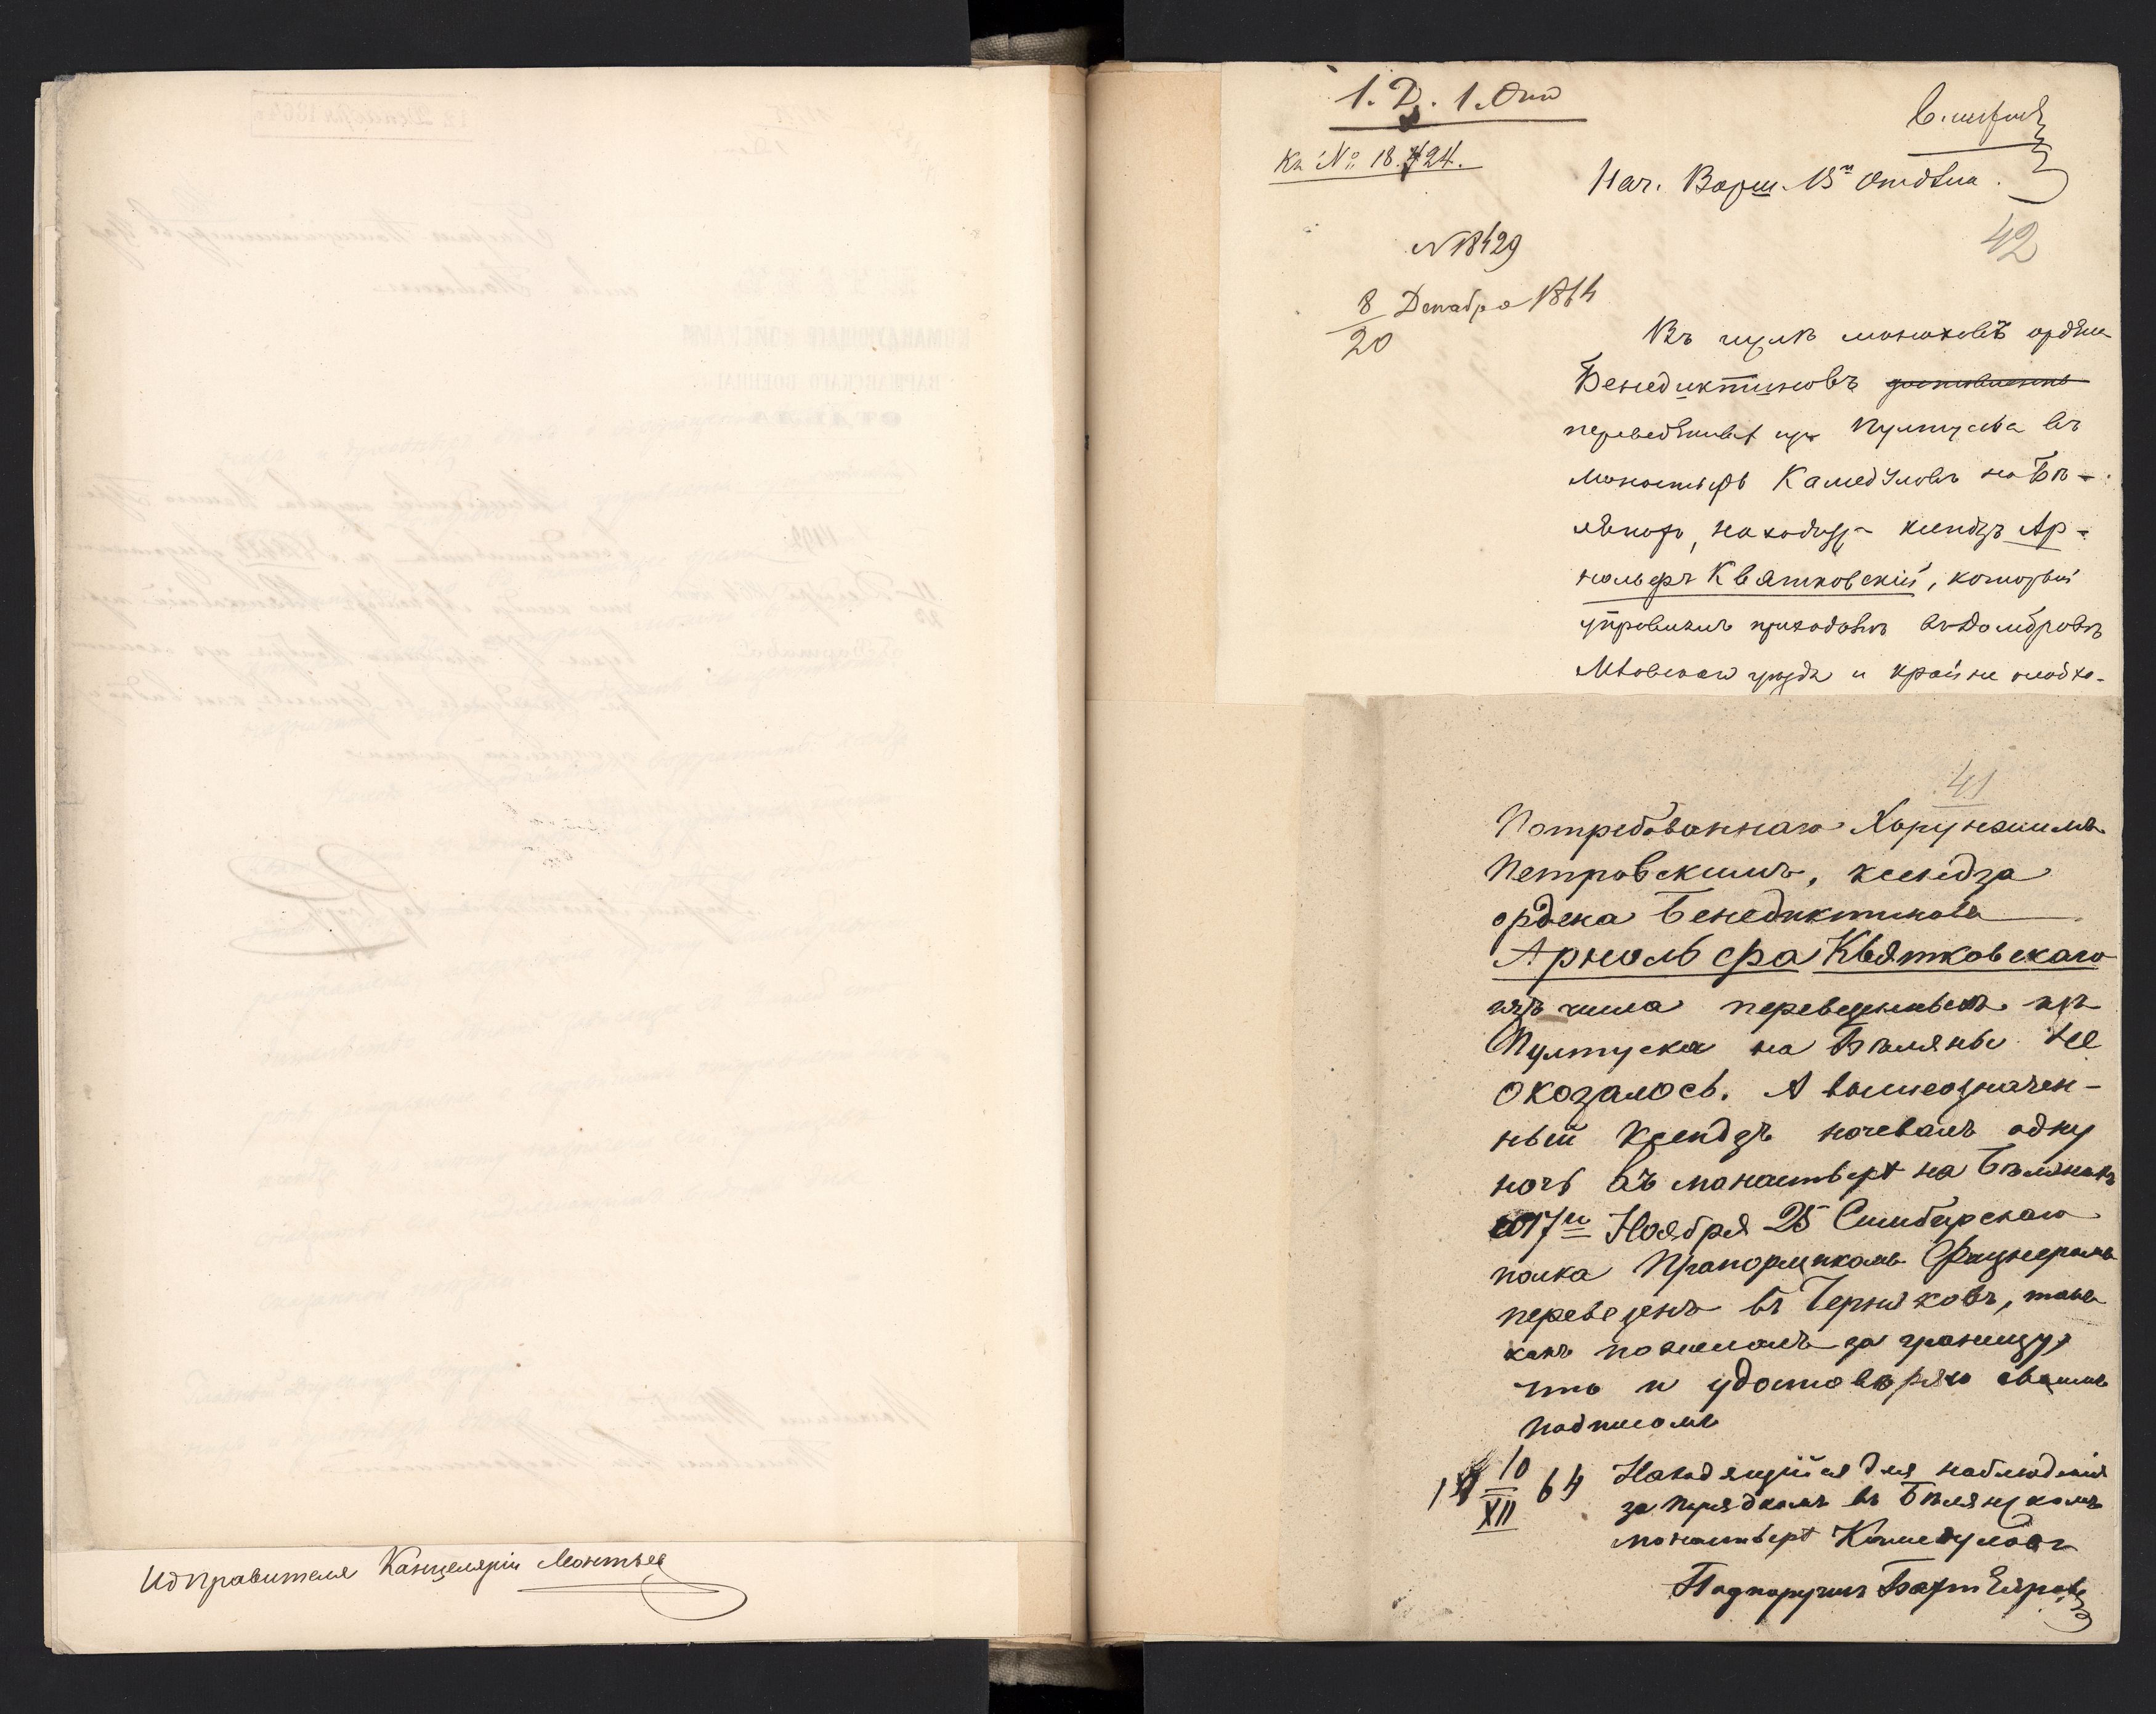 Ид Правителя Канцеляріи Леонтьев
1. Д. 1. Отд
Къ № 18.424.
Нач. Варш. В. Отдѣла.
42
№ 18429
8 Декабря 1864
20
Въ числѣ монаховъ ордена
Бенедиктиновъ
переведенныхъ изъ Пултуска въ
монастырь Камедуловъ на Бѣ-
лянахъ, находится ксендзъ Ар-
нольфъ Квятковскій, который
управлялъ приходомъ въ Домбровѣ
Млавскаго уѣзда и крайне необхо-
41
Потребованнаго Хорунжимъ
Петровскимъ, ксендза
ордена Бенедиктиновъ
Арнольфа Квятковскаго
изъ числа переведенныхъ изъ
Пултуска на Бѣляны не
оказалось. А вышеозначен-
ный Ксендзъ ночевалъ одну
ночь въ монастырѣ на Бѣлянахъ
17го Ноября 25 Симбирскаго
полка Прапорщикомъ
переведенъ въ Черняковъ, такъ
какъ пожелалъ за границу,
что и удостовѣряю своимъ
подписомъ
18 10/XII 64
Находящійся для наблюденія
за порядкомъ въ Бѣлянскомъ
монастырѣ Камедуловъ
Подпоручикъ